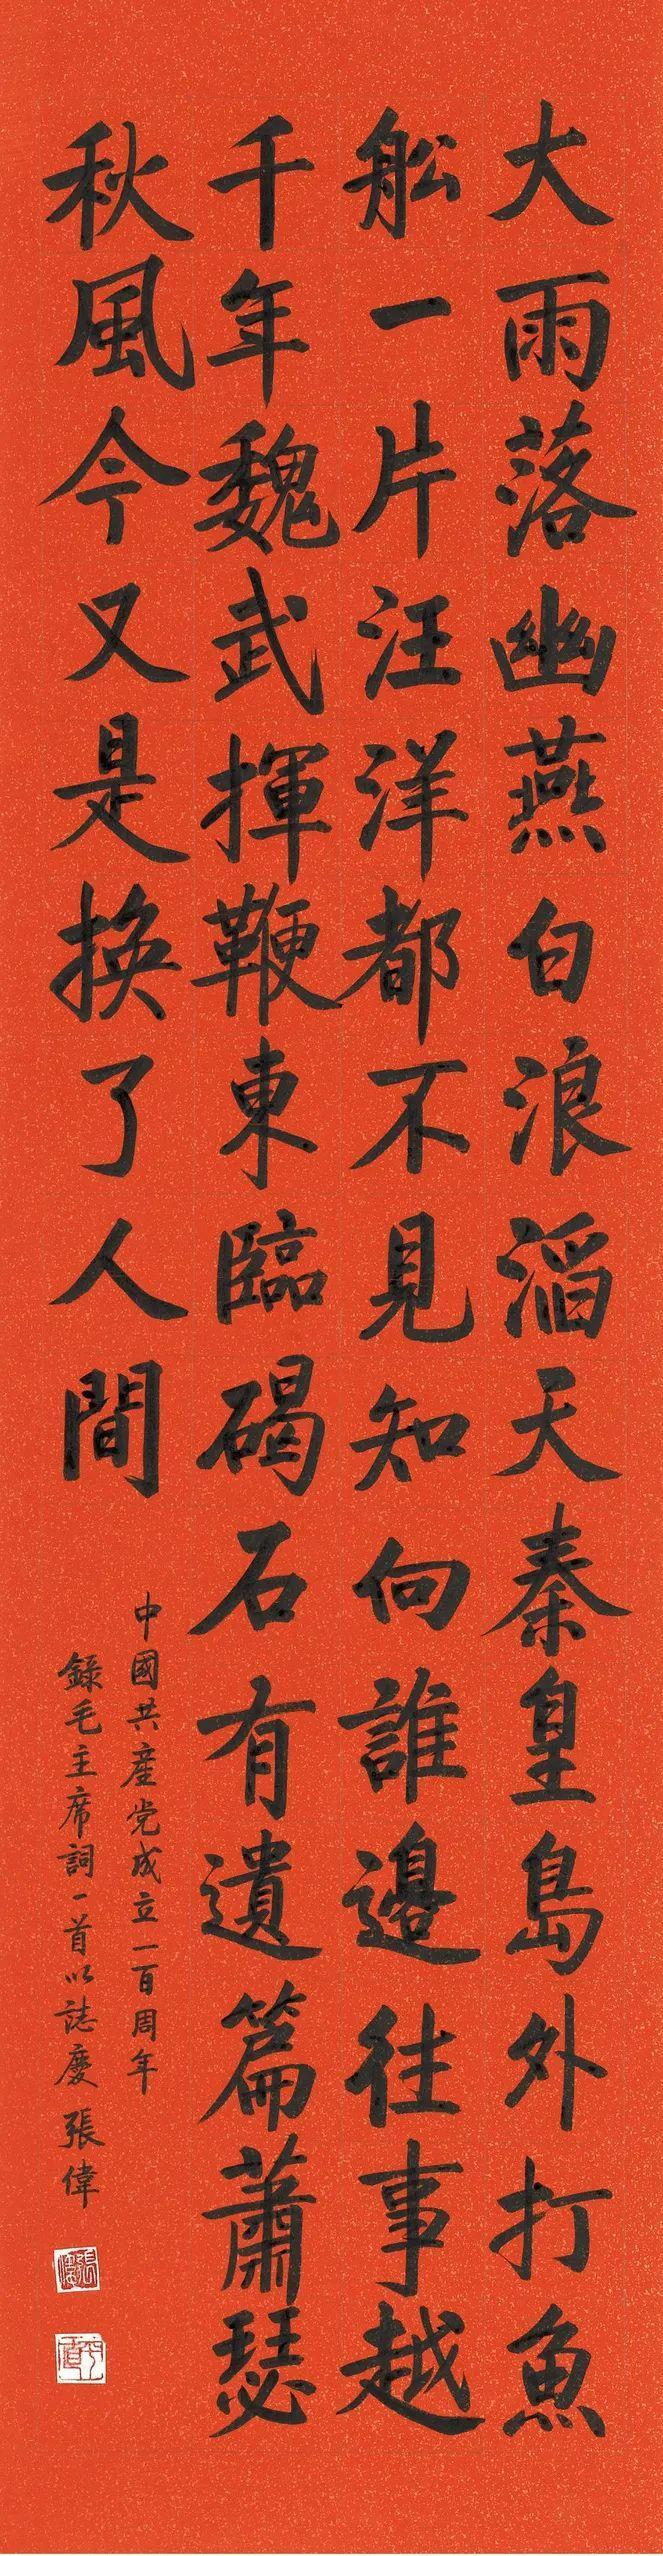 大雨落幽燕白浪滔天秦皇島外打魚
船一片汪洋都不見知向誰邊往事越
千年魏武揮鞭東臨碣石有遺篇蕭瑟
秋風今又是換了人間
中國共産党成立一百周年
錄毛主席詞一首以誌慶 張偉